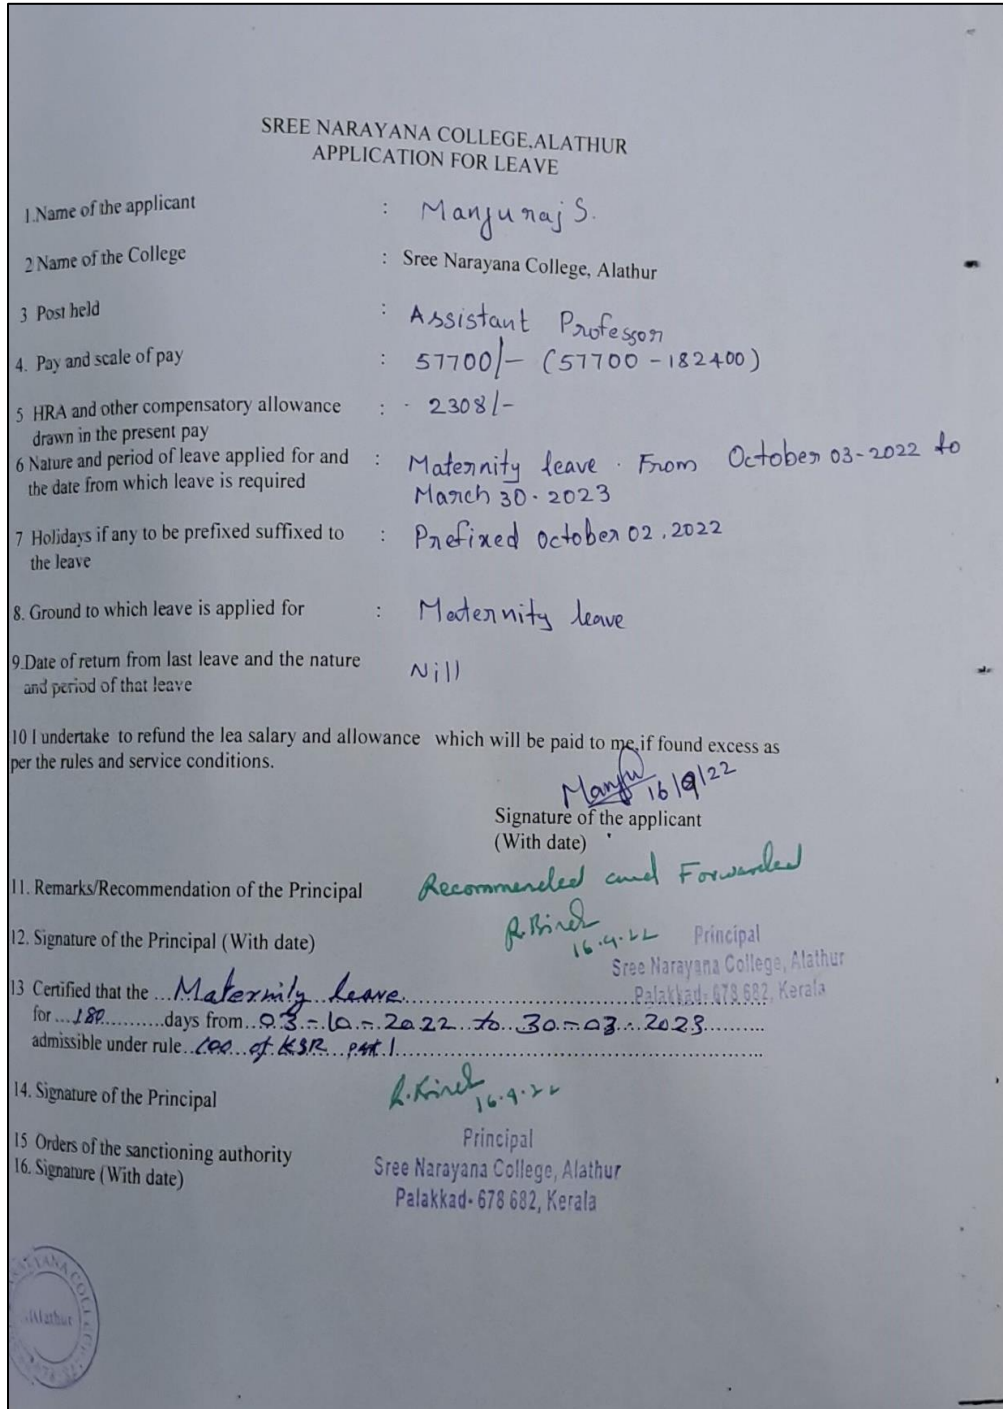 SREE NARAYANA COLLEGE,ALATHUR
APPLICATION FOR LEAVE
1.Name of the applicant : Manju raj S.
2 Name of the College : Sree Narayana College, Alathur
3 Post held : Assistant Professor
4. Pay and scale of pay : 57700/- (57700 - 182400)
5 HRA and other compensatory allowance : - 2308/-
drawn in the present pay
6 Nature and period of leave applied for and : Maternity leave . From October 03-2022 to
the date from which leave is required March 30-2023
7 Holidays if any to be prefixed suffixed to : Prefixed October 02.2022
the leave
8. Ground to which leave is applied for : Maternity leave
9.Date of return from last leave and the nature Nill
and period of that leave
10 I undertake to refund the lea salary and allowance which will be paid to me,if found excess as
per the rules and service conditions.
Manju 16/9/22
Signature of the applicant
(With date)
11. Remarks/Recommendation of the Principal Recommended and Forwarded
12. Signature of the Principal (With date) 16.9.22 Principal
Sree Narayana College, Alathur
Palakkad- 678 682, Kerala
13 Certified that the ...Maternity leave...
for ...180...days from..03-10-2022 to 30-03-2023...
admissible under rule..100 of KSR part 1...
14. Signature of the Principal 16.9.22
15 Orders of the sanctioning authority Principal
16. Signature (With date) Sree Narayana College, Alathur
Palakkad- 678 682, Kerala
Alathur